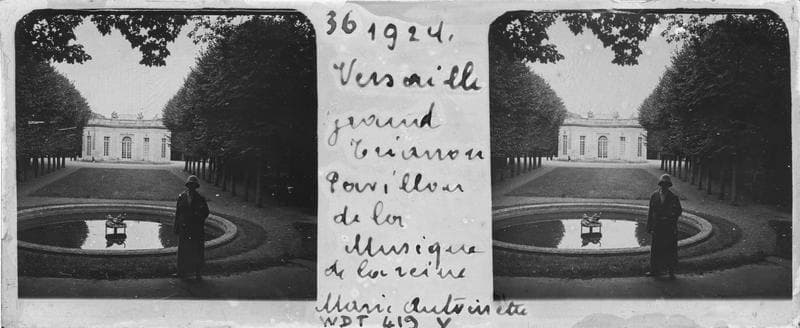 36 1924.
Versaille
grand
Trianon
Pavillon
de la
Musique
de la reine
Marie Antoinette
WDT 419 V